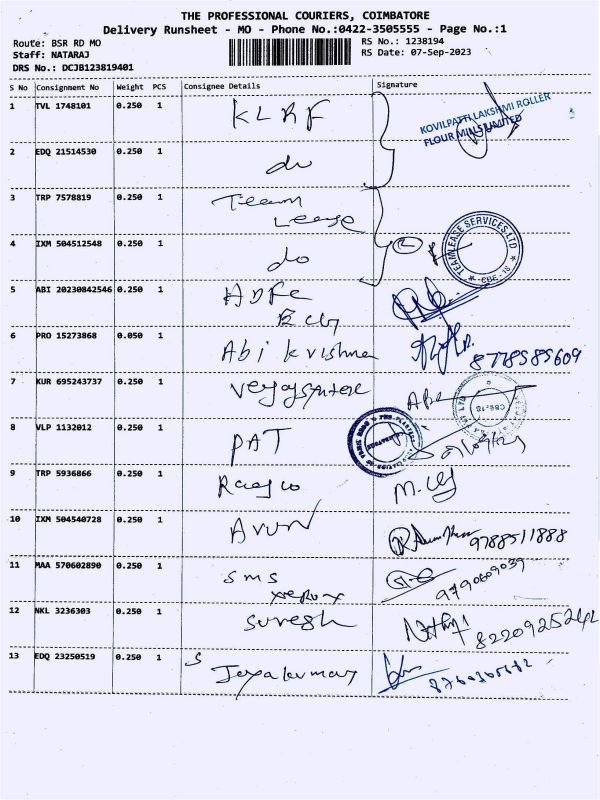 THE PROFESSIONAL COURIERS, COIMBATORE
Delivery Runsheet - MO - Phone No.:0422-3505555 - Page No.:1
Route: BSR RD MO RS No.: 1238194
Staff: NATARAJ RS Date: 07-Sep-2023
DRS No.: DCJB123819401
S No Consignment No Weight PCS Consignee Details Signature
1 TVL 1748101 0.250 1 KLRF
KOVILPATTI LAKSHMI ROLLER
FLOUR MILLS LIMITED
2 EDQ 21514530 0.250 1 do
3 TRP 7578819 0.250 1 Team
Lease
4 IXM 504512548 0.250 1 do
TEAMLEASE SERVICES LTD
CBE - 18
5 ABI 20230842546 0.250 1 HDFC
6 PRO 15273868 0.050 1 Abi krishna 8778585609
7 KUR 695243737 0.250 1
CBE-18
8 VLP 1132012 0.250 1 PAT
9 TRP 5936866 0.250 1
10 IXM 504540728 0.250 1 Arun 9788511888
11 MAA 570602890 0.250 1 SMS
xerox 9790609039
12 NKL 3236303 0.250 1 Suresh
13 EDQ 23250519 0.250 1 S
Jeyakumar